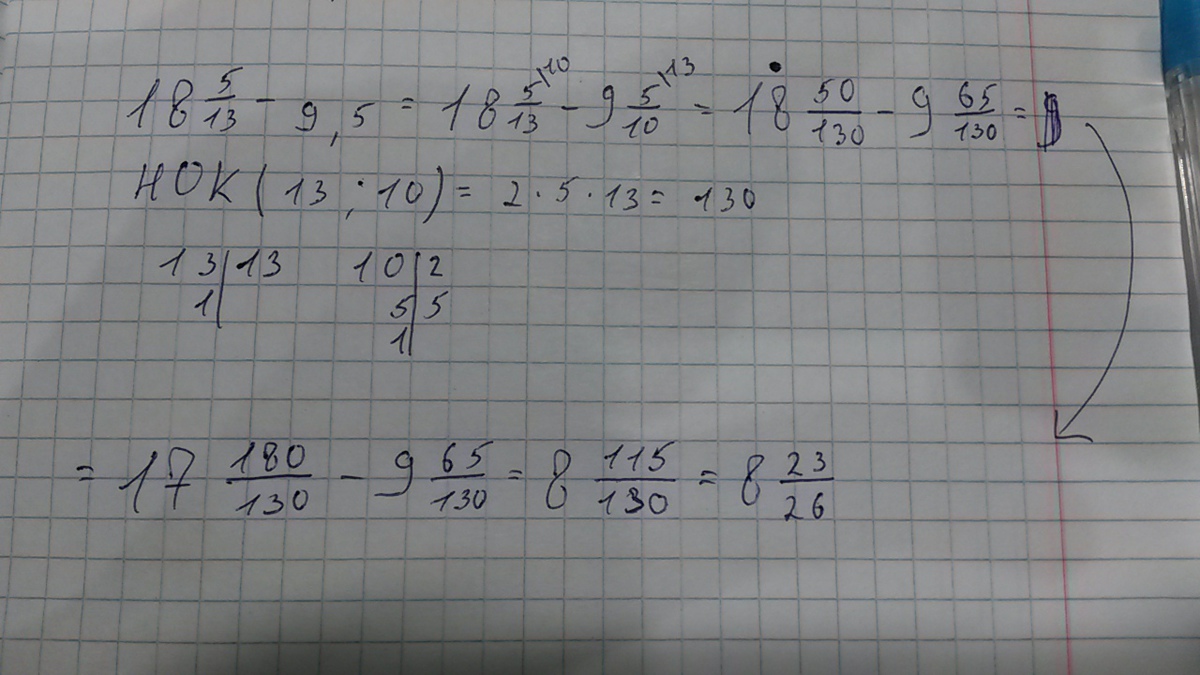 18 5/13 - 9,5 = 18 5/13 \10 - 9 5/10 \13 = 18 50/130 - 9 65/130 =
НОК (13 ; 10) = 2 · 5 · 13 = 130
13 | 13 10 | 2
1 | 5 | 5
1 |
= 17 180/130 - 9 65/130 = 8 115/130 = 8 23/26